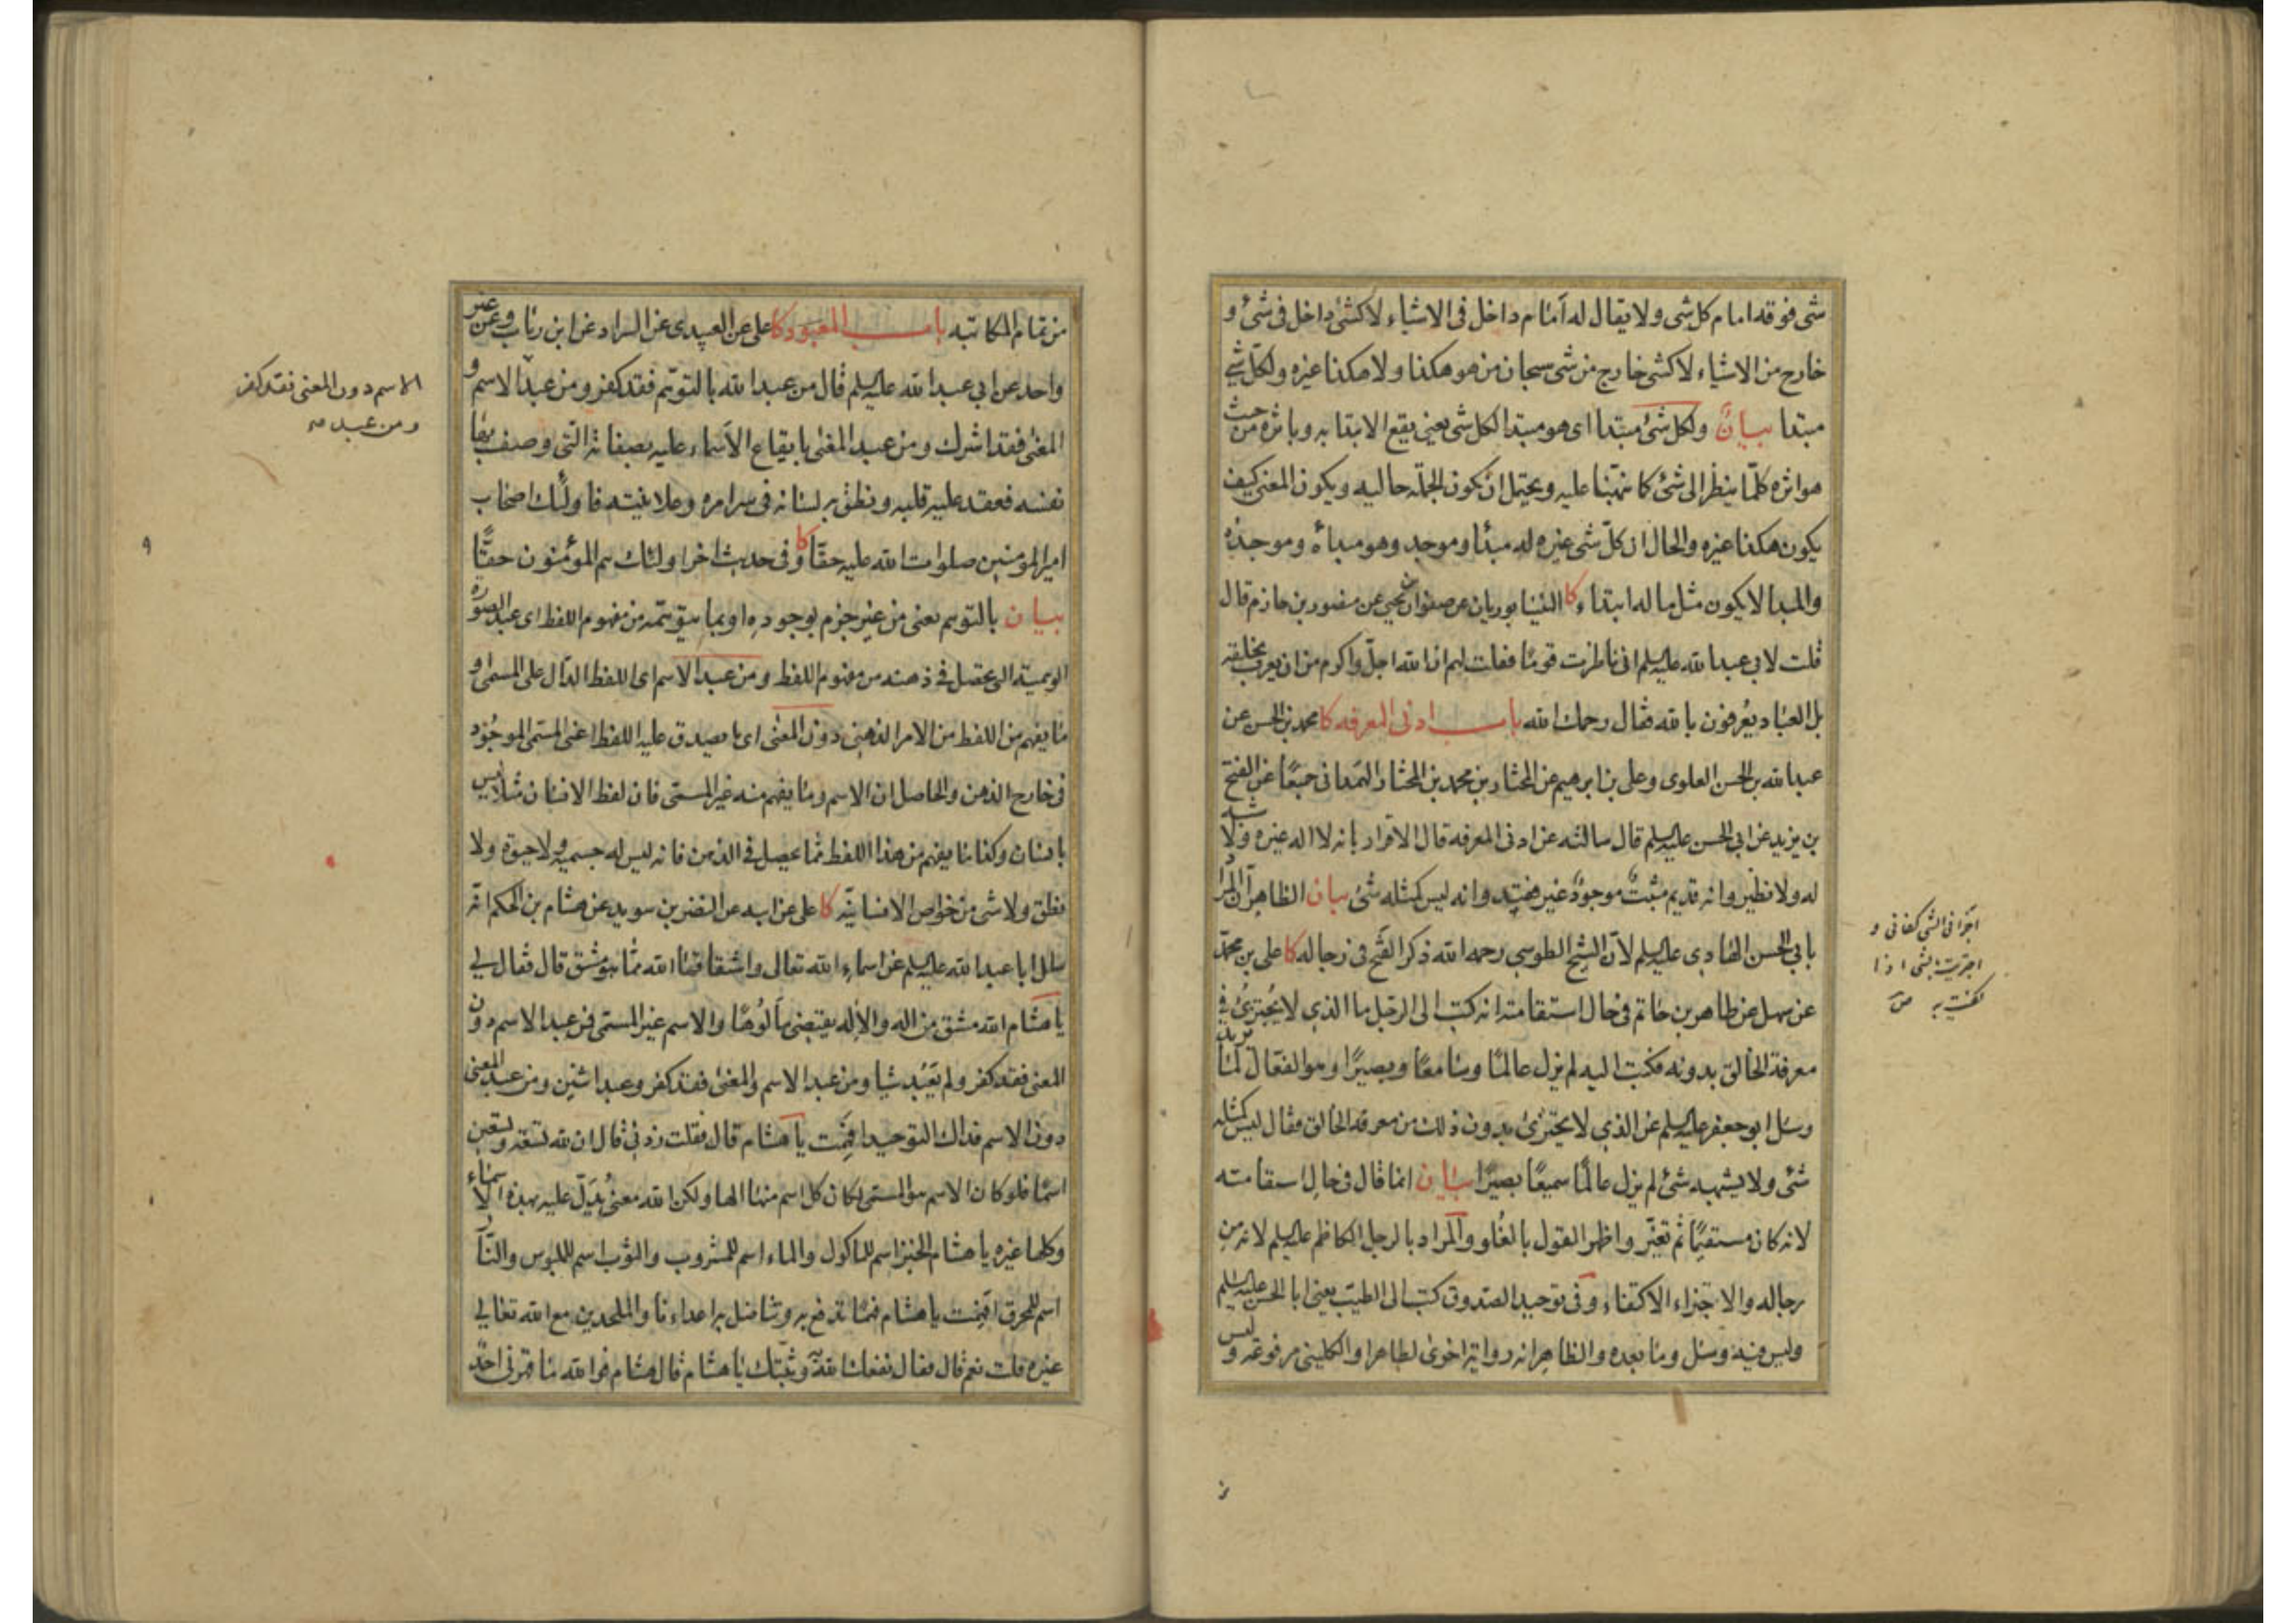 شئ فوقه امام كل شئ ولا يقال له امام داخل فى الاشياء لا كشئ داخل فى شئ و
خارج من الاشياء لا كشئ خارج من شئ سبحان من هو هكذا ولا هكذا غيره ولكل شئ
مبتدا بيان ولكل شئ مبتدا اى هو مبتدا لكل شئ يعنى يقع الابتدا به وباثره من حيث
هو اثره كلما ينظر الى شئ كما نبهنا عليه ويحتمل ان تكون الجملة حاليه ويكون المعنى كيف
يكون هكذا غيره والحال ان كل شئ غيره له مبدأ وموجد وهو مبدأه وموجده
والمبدا لا يكون مثل ما له ابتداء كا النيسابوريان عن صفوان بن يحيى عن منصور بن حازم قال
قلت لابى عبدالله عليه السلم انى ناظرت قوما فقلت لهم ان الله اجل واكرم من ان يعرف بخلقه
بل العباد يعرفون بالله فقال رحمك الله باب ادنى المعرفه كا محمد بن الحسن عن
عبدالله بن الحسن العلوى وعلى بن ابرهيم عن المختار بن محمد بن المختار الهمدانى جميعًا عن الفتح
بن يزيد عن ابى الحسن عليه السلم قال سالته عن ادنى المعرفه قال الاقرار بانه لا اله غيره ولا شبه
له ولا نظير وانه قديم مثبت موجود غير فقيد وانه ليس كمثله شئ بيان الظاهر ان المراد
بابى الحسن الهادى عليه السلم لان الشيخ الطوسى رحمه الله ذكر الفتح فى رجاله كا على بن محمد
عن سهل عن طاهر بن حاتم فى حال استقامته انه كتب الى الرجل ما الذى لا يجتزئ فى
معرفة الخالق بدونه فكتب اليه لم يزل عالمًا وسامعًا وبصيرًا وهو الفعال لما يريد
وسئل ابو جعفر عليه السلم عن الذى لا يجتزئ بدون ذلك من معرفة الخالق فقال ليس كمثله
شئ ولا يشبهه شئ لم يزل عالمًا سميعًا بصيرًا بيان انما قال فى حال استقامته
لانه كان مستقيمًا ثم تغير واظهر القول بالغلو والمراد بالرجل الكاظم عليه السلم لانه من
رجاله والاجتزاء الاكتفاء وفى توحيد الصدوق كتب الى الطيب يعنى ابا الحسن عليه السلم
وليس فيه وسئل وما بعده والظاهر انه رواية اخرى لطاهر او الكلينى مرفوعه وليس
اجزأنى الشئ كفانى و
اجتزيت بالشئ اذا
اكتفيت به
من تمام المكاتبه باب المعبود كا على عن العبيدى عن السراد عن ابن رئاب وعن غير
واحد عن ابى عبدالله عليه السلم قال من عبد الله بالتوهم فقد كفر ومن عبد الاسم و
المعنى فقد اشرك ومن عبد المعنى بايقاع الاسماء عليه بصفاته التى وصف بها
نفسه فعقد عليه قلبه ونطق به لسانه فى سرائره وعلانيته فاولئك اصحاب
اميرالمؤمنين صلوات الله عليه حقّا كا وفى حديث اخر اولئك هم المؤمنون حقًّا
بيان بالتوهم يعنى من غير جزم بوجوده او بما يتوهمه من مفهوم اللفظ اى عبد الصورة
الوهمية التى تحصل فى ذهنه من مفهوم اللفظ ومن عبد الاسم اى اللفظ الدال على المسمى او
ما يفهم من اللفظ من الامر الذهنى دون المعنى اى ما يصدق عليه اللفظ اعنى المسمى الموجود
فى خارج الذهن والحاصل ان الاسم وما يفهم منه غير المسمى فان لفظ الانسان مثلا ليس
بانسان وكذا ما يفهم من هذا اللفظ مما يحصل فى الذهن فانه ليس له جسمية ولا حيوة ولا
نطق ولا شئ من خواص الانسانية كا على عن ابيه عن النضر بن سويد عن هشام بن الحكم انه
سئل ابا عبدالله عليه السلم عن اسماء الله تعالى واشتقاقها الله مما هو مشتق قال فقال لى
يا هشام الله مشتق من اله والاله يقتضى مألوها والاسم غير المسمى فمن عبد الاسم دون
المعنى فقد كفر ولم يعبد شيا ومن عبد الاسم والمعنى فقد كفر وعبد اثنين ومن عبد المعنى
دون الاسم فذاك التوحيد افهمت يا هشام قال فقلت زدنى قال ان لله تسعة وتسعين
اسمًا فلو كان الاسم هو المسمى لكان كل اسم منها الها ولكن الله معنى يدل عليه بهذه الاسماء
وكلها غيره يا هشام الخبز اسم للماكول والماء اسم للمشروب والثوب اسم للملبوس والنار
اسم للمحرق افهمت يا هشام فهمًا تدفع به وتناضل به اعداءنا والملحدين مع الله تعالى
غيره قلت نعم قال فقال نفعك الله به وثبتك يا هشام قال هشام فوالله ما قهرنى احد
الاسم دون المعنى فقد كفر
ومن عبد
٩